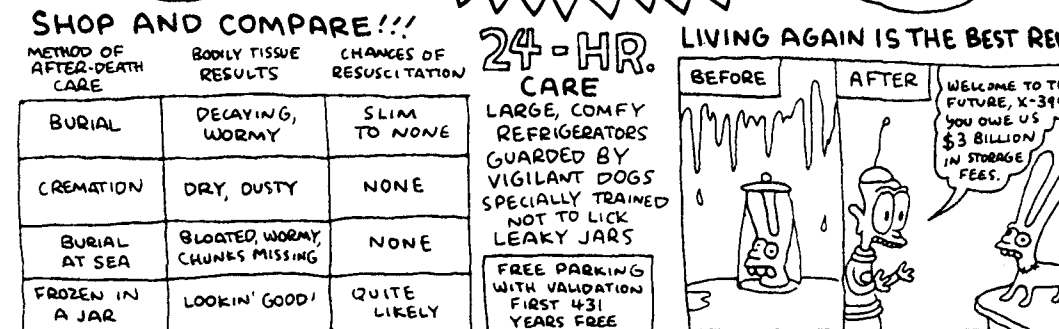 SHOP AND COMPARE!!!
METHOD OF
AFTER-DEATH
CARE
BODILY TISSUE
RESULTS
CHANCES OF
RESUSCITATION
BURIAL
DECAYING,
WORMY
SLIM
TO NONE
CREMATION
DRY, DUSTY
NONE
BURIAL
AT SEA
BLOATED, WORMY,
CHUNKS MISSING
NONE
FROZEN IN
A JAR
LOOKIN' GOOD!
QUITE
LIKELY
24-HR.
CARE
LARGE, COMFY
REFRIGERATORS
GUARDED BY
VIGILANT DOGS
SPECIALLY TRAINED
NOT TO LICK
LEAKY JARS
FREE PARKING
WITH VALIDATION
FIRST 431
YEARS FREE
LIVING AGAIN IS THE BEST
BEFORE
AFTER
WELCOME TO
FUTURE,
YOU OWE US
$3 BILLION
IN STORAGE
FEES.